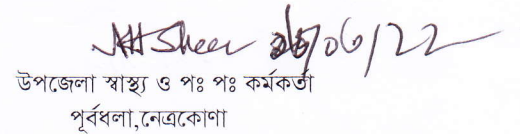 06/22
উপজেলা স্বাস্থ্য ও পঃ পঃ কর্মকর্তা
পূর্বধলা,নেত্রকোণা